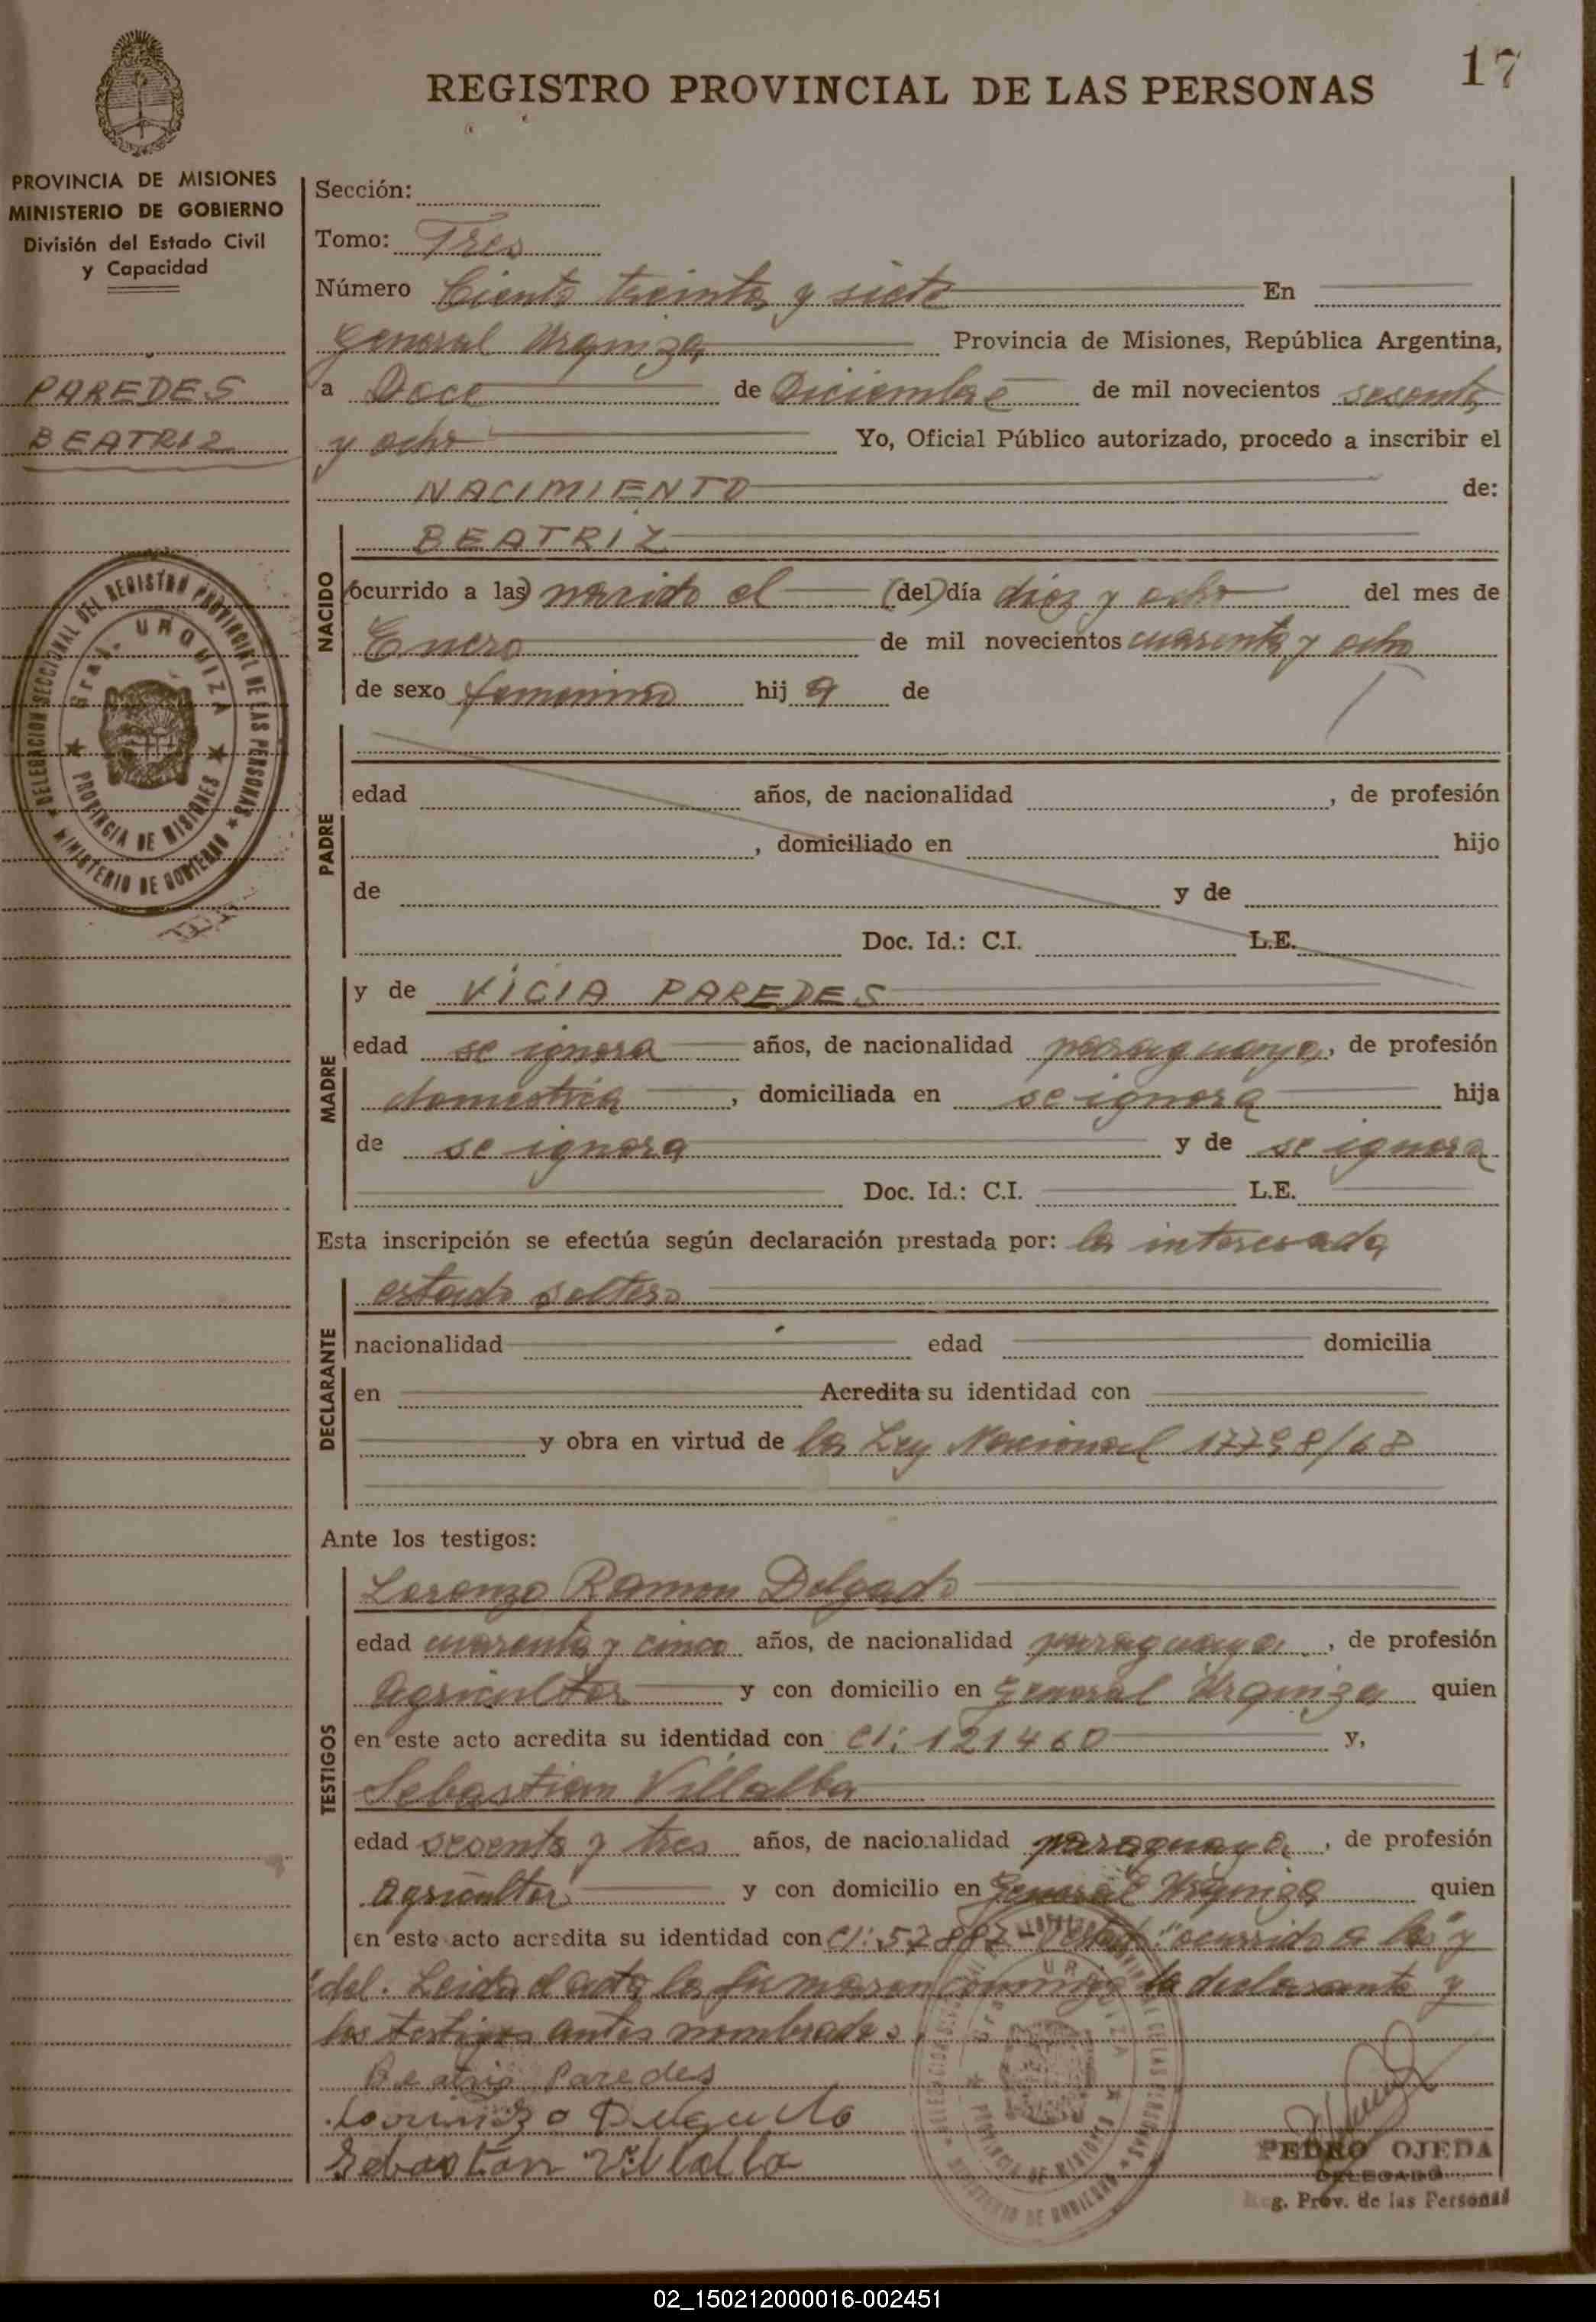 17
REGISTRO PROVINCIAL DE LAS PERSONAS
PROVINCIA DE MISIONES
MINISTERIO DE GOBIERNO
División del Estado Civil
y Capacidad
PAREDES
BEATRIZ
DELEGACION SECCIONAL DEL REGISTRO PROVINCIAL DE LAS PERSONAS
MINISTERIO DE GOBIERNO
Gral. URQUIZA
PROVINCIA DE MISIONES
Sección:
Tomo: Tres
Número Ciento treinta y siete En
General Urquiza Provincia de Misiones, República Argentina,
a Doce de Diciembre de mil novecientos sesenta
y ocho Yo, Oficial Público autorizado, procedo a inscribir el
NACIMIENTO de:
NACIDO
BEATRIZ
(ocurrido a las) nacida el (del) día diez y ocho del mes de
Enero de mil novecientos cuarenta y ocho
de sexo femenino hij a de
PADRE
edad años, de nacionalidad , de profesión
, domiciliado en hijo
de y de
Doc. Id.: C.I. L.E.
MADRE
y de VICIA PAREDES
edad se ignora años, de nacionalidad paraguaya, de profesión
domestica , domiciliada en se ignora hija
de se ignora y de se ignora
Doc. Id.: C.I. L.E.
Esta inscripción se efectúa según declaración prestada por: la interesada
DECLARANTE
estado soltera
nacionalidad edad domicilia
en Acredita su identidad con
y obra en virtud de la Ley Nacional 17798/68
Ante los testigos:
TESTIGOS
Lorenzo Ramon Delgado
edad cuarenta y cinco años, de nacionalidad paraguaya , de profesión
Agricultor y con domicilio en General Urquiza quien
en este acto acredita su identidad con CI: 121460 y,
Sebastian Villalba
edad sesenta y tres años, de nacionalidad paraguaya , de profesión
Agricultor y con domicilio en General Urquiza quien
en este acto acredita su identidad con CI: 57887 "ocurrido a las" y
"del. Leida el acta la firmaron conmigo la declarante y
los testigos antes nombrados.
Beatriz Paredes
Lorenzo Delgado
Sebastian Villalba
PEDRO OJEDA
DELEGADO
Reg. Prov. de las Personas
02_150212000016-002451